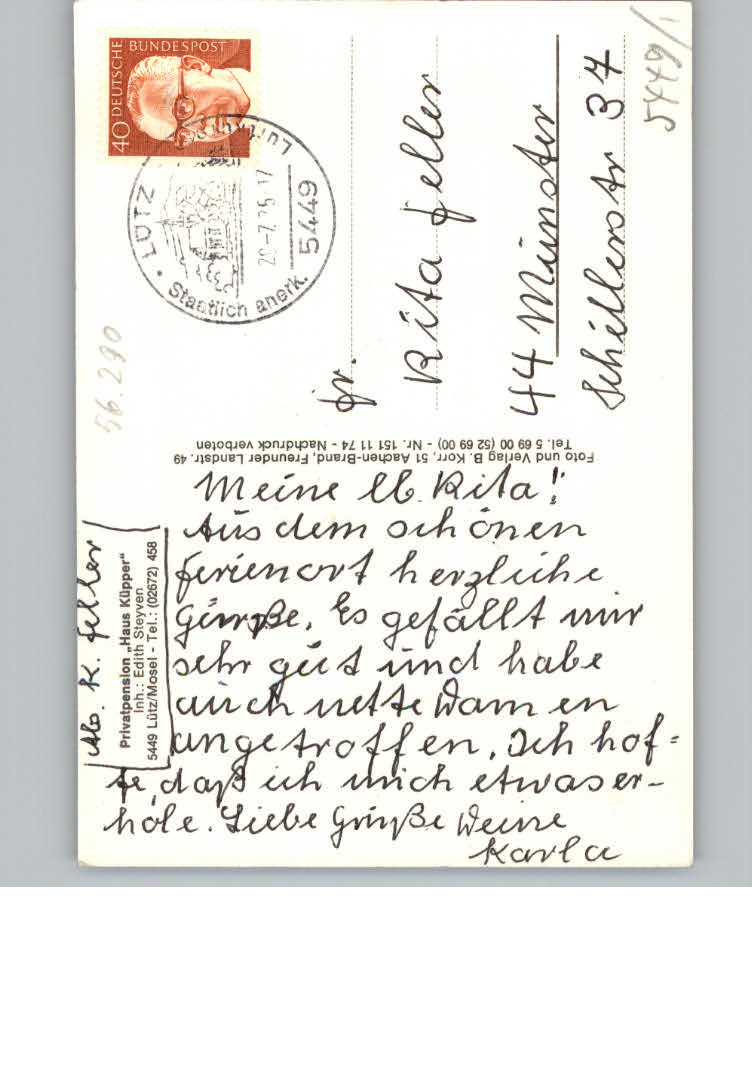 DEUTSCHE BUNDESPOST
40
LÜTZ
Luftkurort
20-7.75-17
5449
Staatlich anerk.
5449/1
56.290
Fr.
Rita Feller
44 Münster
Schillerstr 37
Foto und Verlag B. Korr, 51 Aachen-Brand, Freunder Landstr. 49
Tel. 5 69 00 (52 69 00) - Nr. 151 11 74 - Nachdruck verboten
Abs. K. Feller
Privatpension „Haus Küpper"
Inh.: Edith Steyven
5449 Lütz/Mosel - Tel.: (02672) 458
Meine lb. Rita!
Aus dem schönen
Ferienort herzliche
Grüße. Es gefällt mir
sehr gut und habe
auch nette Damen
angetroffen. Ich hof=
fe, daß ich mich etwas er-
hole. Liebe Grüße Deine
Karla